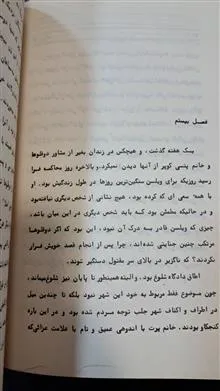 فصل بیستم
یک هفته گذشت، و هیچکس در زندان بغیر از مشاور دوقلوها
و خانم پتسی کوپر از آنها دیدن نمیکرد. و بالاخره روز محاکمه فرا
رسید روزیکه برای ویلسن سنگین‌ترین روزها در طول زندگیش بود. او
با همه سعی ای که کرده بود، هیچ نشانی از شخص دیگری نیافته بود
و در حالیکه مطمئن بود که باید شخص دیگری در این میان باشد،
چیزی که ویلسن قادر به درک آن نبود، این بود که اگر دوقلوها
مرتکب چنین جنایتی شده‌اند، چرا پس از انجام قصد خویش فرار
نکردند؟ که ناگزیر در بالای سر مقتول دستگیر شوند.
اطاق دادگاه شلوغ بود، و البته همینطور تا پایان نیز شلوغ میماند،
چون موضوع فقط مربوط به خود این شهر نبود بلکه تا چندین میل
در اطراف و اکناف شهر جلب توجه مردم شده بود و در این باره
کنجکاو بودند. خانم پرت با اندوهی عمیق و تام با علامت عزائی که